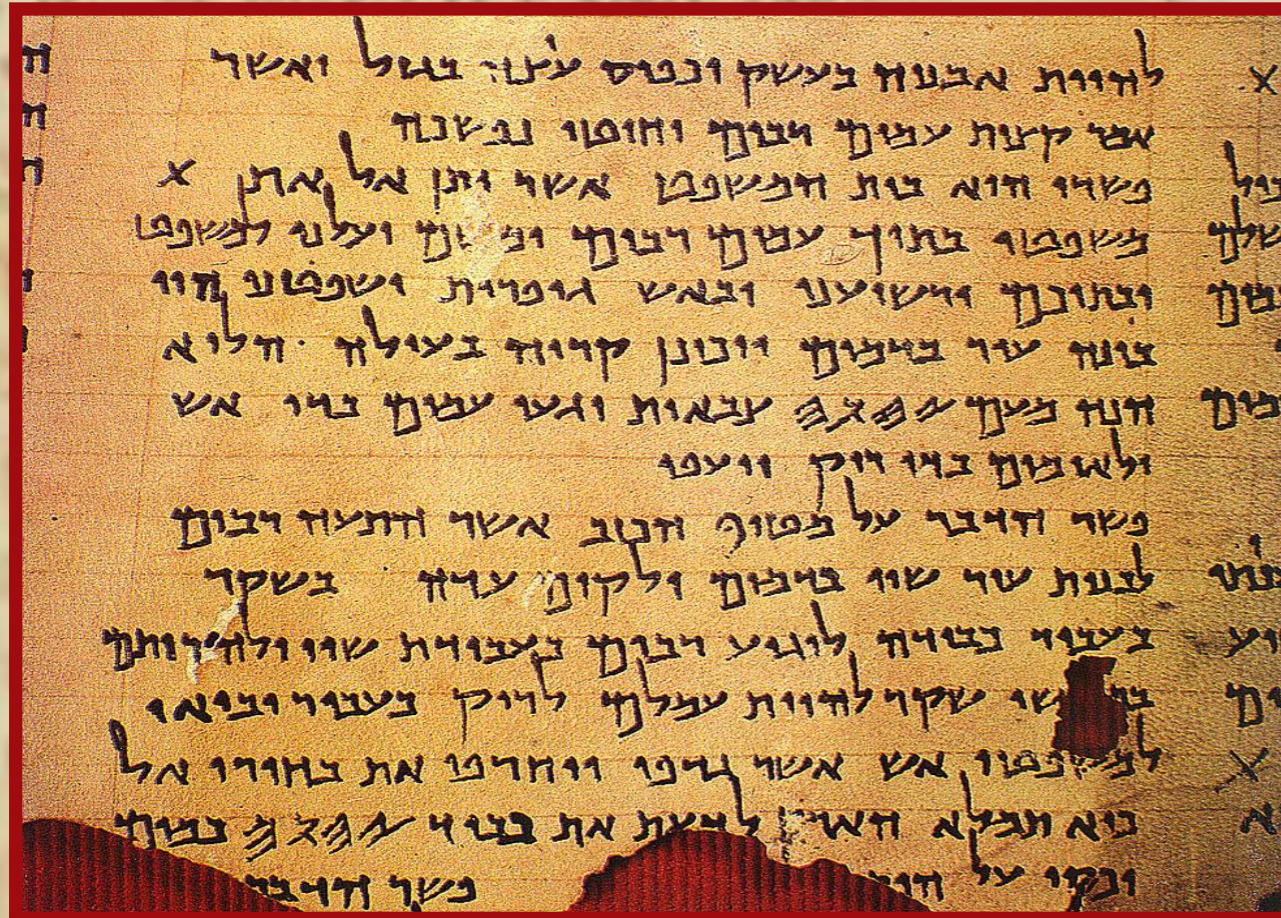 להיות אבניה בעשק וכפיס עיצה בגזל ואשר
אמר קצות עמים רבים וחוטי נפשכה
פשרו הוא בית המשפט אשר יתן אל את X
משפטו בתוך עמים רבים ומשם יעלנו למשפט
ובתוכם ירשיענו ובאש גופרית ישפטנו הוי
בונה עיר בדמים ויכונן קריה בעולה הלוא
הנה מעם 𐤉𐤄𐤅𐤄 צבאות יגעו עמים בדי אש
ולאומים בדי ריק ייעפו
פשר הדבר על מטיף הכזב אשר התעה רבים
לבנות עיר שוו בדמים ולקים עדה בשקר
בעבור כבודה לוגיע רבים בעבודת שוו ולהרותם
שי שקר להיות עמלם לריק בעבור יבואו
למשפטי אש אשר גדפו ויחרפו את בחירי אל
כיא תמלא הארץ לדעת את כבוד 𐤉𐤄𐤅𐤄 כמים
יכסו על פשר הדבר